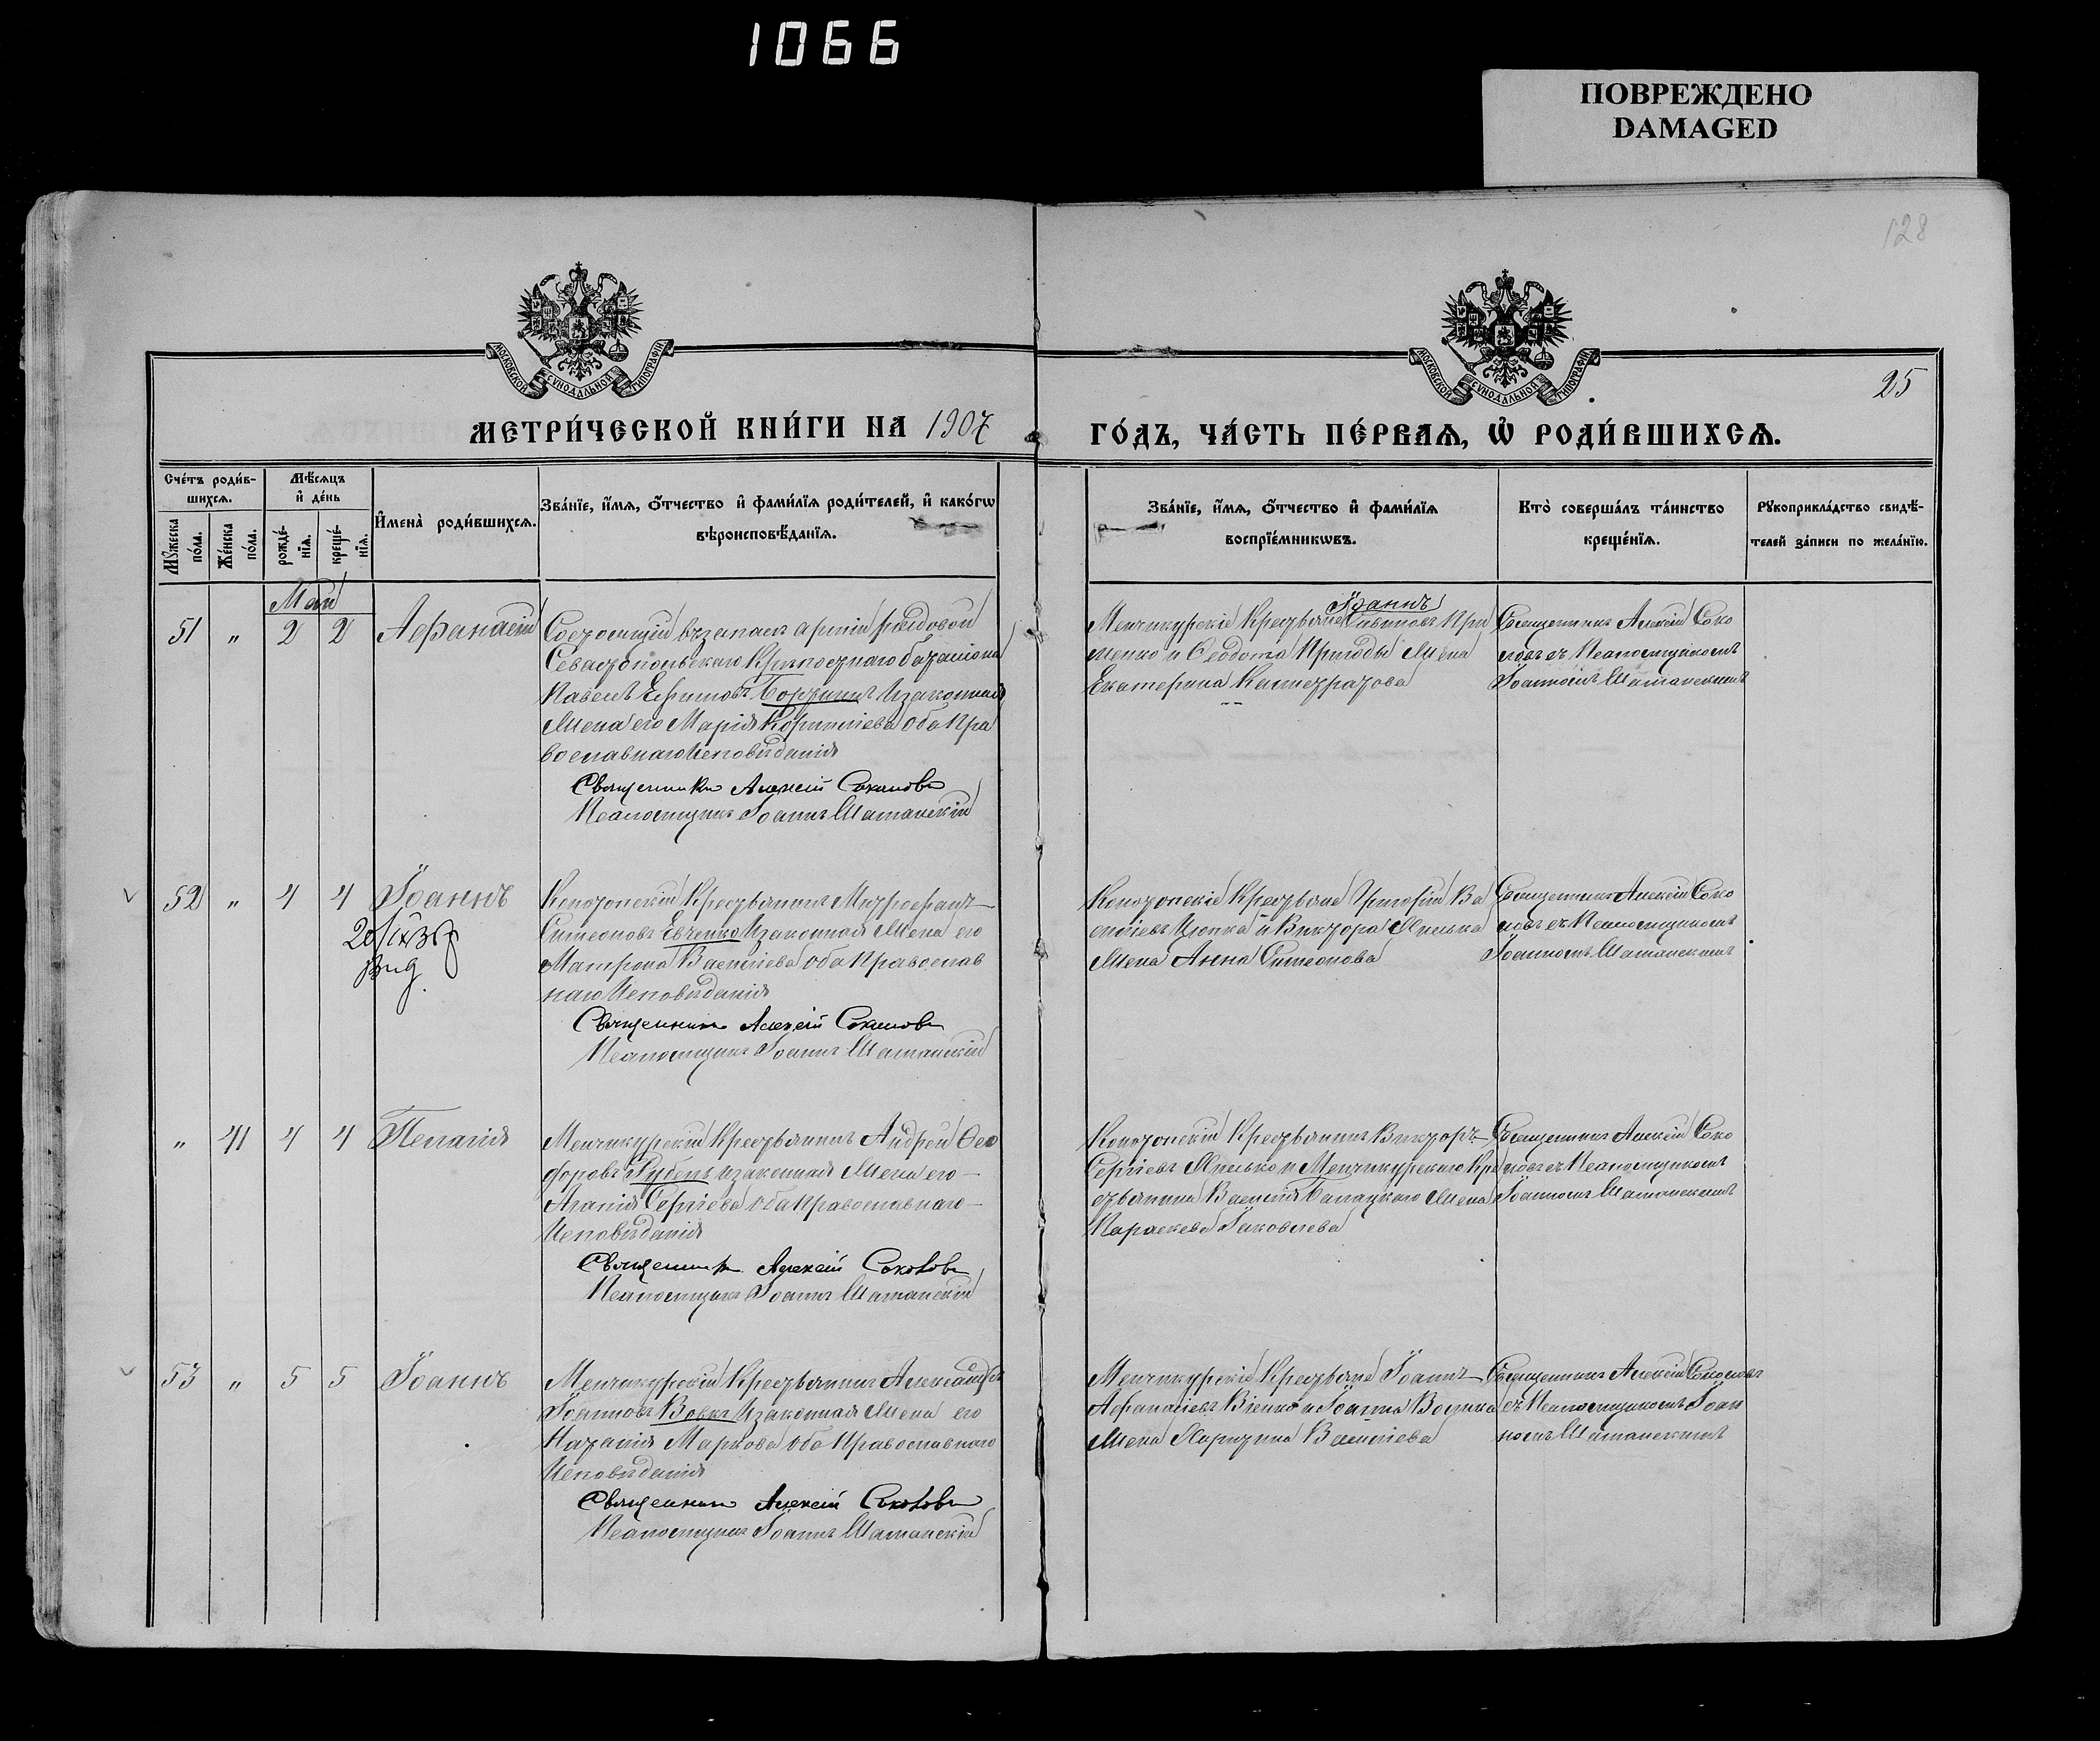 1066
ПОВРЕЖДЕНО
DAMAGED
128
МОСКОВСКОЙ СѴНОДАЛЬНОЙ ТИПОГРАФІИ
МОСКОВСКОЙ СѴНОДАЛЬНОЙ ТИПОГРАФІИ
25
МЕТРИ́ЧЕСКОЙ КНИ́ГИ НА 1907
ГО́ДЪ, ЧА́СТЬ ПЕ́РВАѦ, Ѡ҆ РОДИ́ВШИХСѦ.
Сче́тъ роди́в-
шихсѧ.
Мꙋ́жеска по́ла.
Же́нска по́ла.
Мѣ́сѧцъ
и҆ де́нь
рожде́-
нїѧ.
креще́-
нїѧ.
И҆мена̀ роди́вшихсѧ.
Зва́нїе, и҆́мѧ, ѻ҆́тчество и҆ фами́лїѧ роди́телей, и҆ како́гѡ
вѣроисповѣ́данїѧ.
Зва́нїе, и҆́мѧ, ѻ҆́тчество и҆ фами́лїѧ
воспрїе́мникѡвъ.
Кто̀ соверша́лъ та́инство
креще́нїѧ.
Рꙋкоприкла́дство свидѣ́-
телей за́писи по жела́нїю.
Май
51 " 2 2 Афанасій
Состоящій въ запасѣ арміи рядовой
Севастопольскаго Крѣпостнаго баталіона
Павелъ Ефимовъ и законная
жена его Марія Корниліева оба Пра
вославнаго Исповѣданія
Священникъ Алексій Соколовъ
Псаломщикъ Іоаннъ Шаманскій
Іоаннъ
Менчикурскіе Крестьяне Саввиновъ При
менко и Ѳеодота Приходы жена
Екатерина
Священникъ Алексій Соко
ловъ съ Псаломщикомъ
Іоанномъ Шаманскимъ
52 " 4 4 Іоаннъ
Копотопскій Крестьянинъ Митрофанъ
Симеоновъ Евченко и законная жена его
Матрона Василіева оба Православ
наго Исповѣданія
Священникъ Алексій Соколовъ
Псаломщикъ Іоаннъ Шаманскій
Григорій Ва
силіевъ и Виктора жена Анна Симеонова
Священникъ Алексій Соко
ловъ съ Псаломщикомъ
Іоанномъ Шаманскимъ
" 41 4 4 Пелагія
Менчикурскій Крестьянинъ Андрей Ѳео
доровъ и законная жена его
Агапія Сергіева оба Православнаго
Исповѣданія
Священникъ Алексій Соколовъ
Псаломщикъ Іоаннъ Шаманскій
Крестьянинъ Викторъ
Сергіевъ и Менчикурскаго Кре
стьянина Василія жена
Параскева Іаковлева
Священникъ Алексій Соко
ловъ съ Псаломщикомъ
Іоанномъ Шаманскимъ
53 " 5 5 Іоаннъ
Менчикурскій Крестьянинъ Александръ
Іоанновъ Вовкъ и законная жена его
Наталія Маркова оба Православнаго
Исповѣданія
Священникъ Алексій Соколовъ
Псаломщикъ Іоаннъ Шаманскій
Менчикурскіе Крестьяне Іоаннъ
Афанасіевъ и Іоанна
жена Харитина Василіева
Священникъ Алексій Соколовъ
съ Псаломщикомъ Іоан
номъ Шаманскимъ